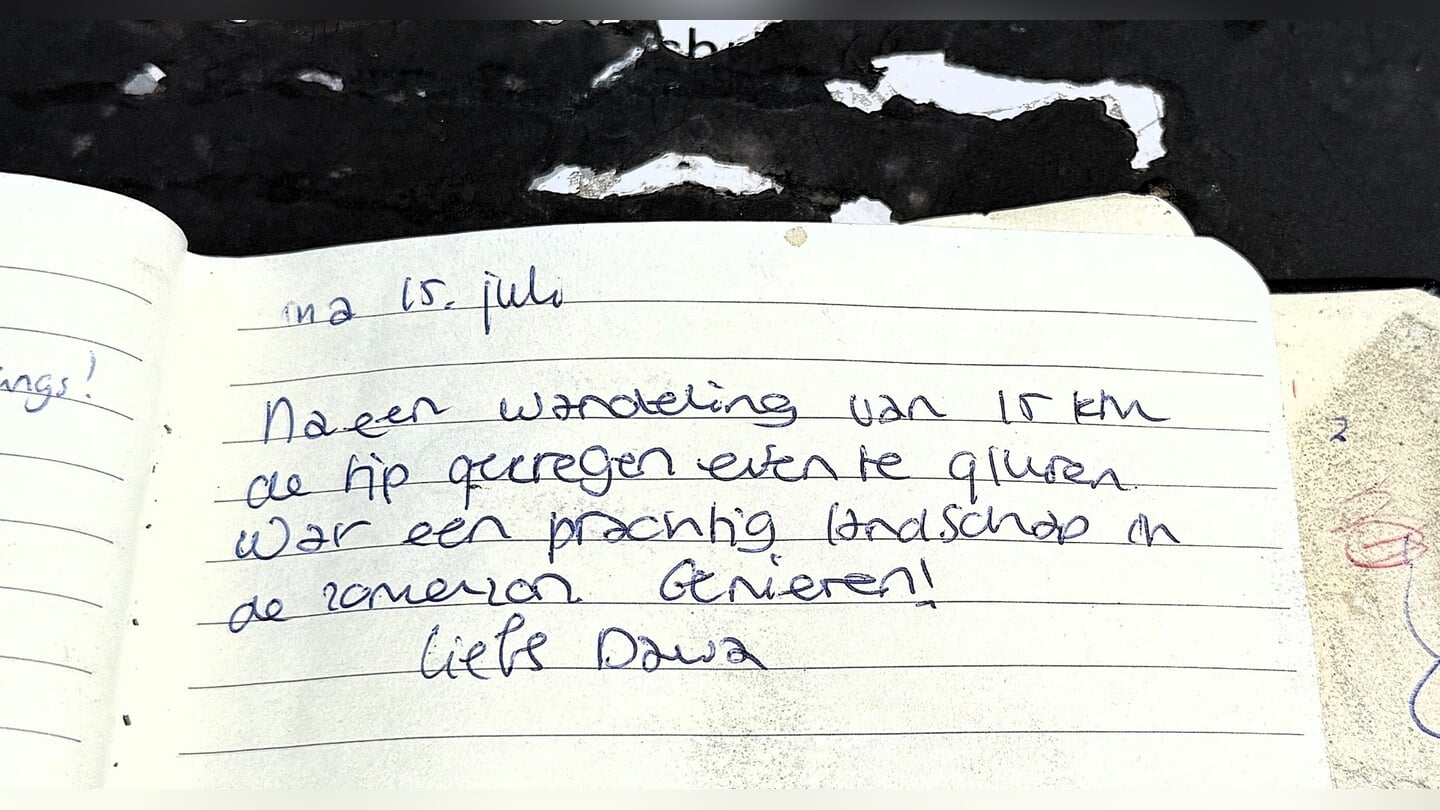 sh
ings!
ma 15. juli
Na een wandeling van 15 km
de tip gekregen even te gluren.
Wat een prachtig landschap in
de zomerzon. Genieten!
Liefs Dawa
2